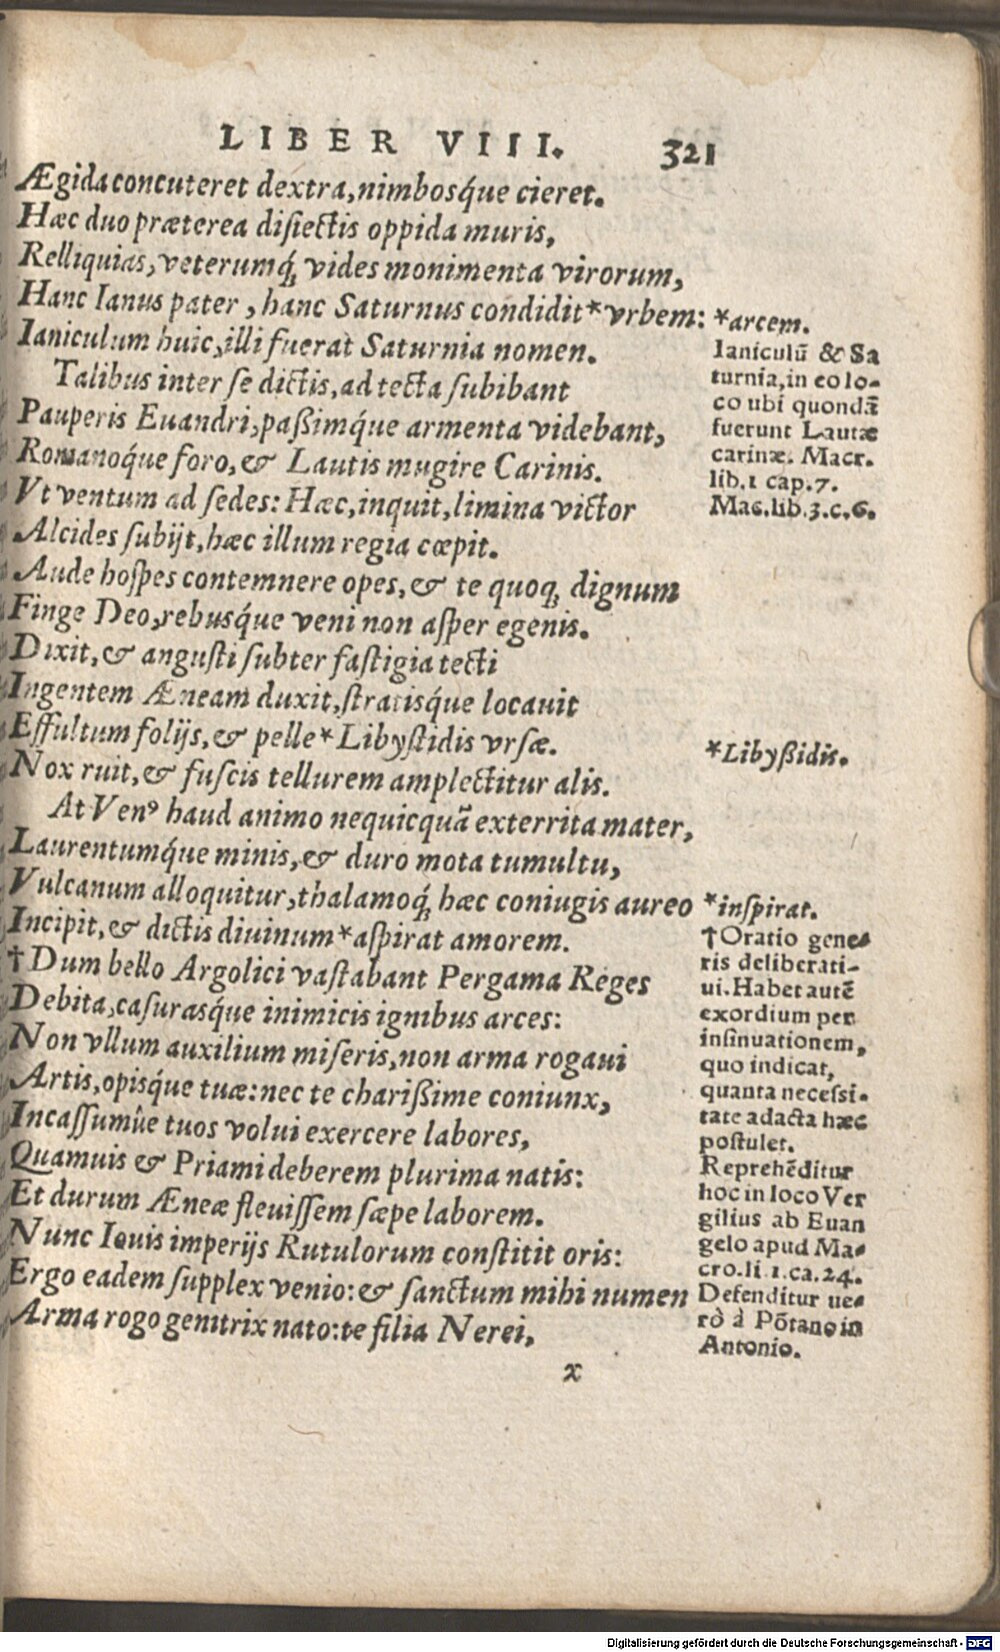 LIBER VIII. 321
Ægida concuteret dextra, nimbosq́ue cieret.
Hæc duo præterea disiectis oppida muris,
Relliquias, veterumq́; vides monimenta virorum,
Hanc Ianus pater, hanc Saturnus condidit * vrbem:
Ianiculum huic, illi fuerat Saturnia nomen.
Talibus inter se dictis, ad tecta subibant
Pauperis Euandri, paßimq́ue armenta videbant,
Romanoq́ue foro, & Lautis mugire Carinis.
Vt ventum ad sedes: Hæc, inquit, limina victor
Alcides subijt, hæc illum regia cœpit.
Aude hospes contemnere opes, & te quoq; dignum
Finge Deo, rebusq́ue veni non asper egenis.
Dixit, & angusti subter fastigia tecti
Ingentem Æneam duxit, stratisq́ue locauit
Effultum folijs, & pelle * Libystidis vrsæ.
Nox ruit, & fuscis tellurem amplectitur alis.
At Venꝰ haud animo nequicquã exterrita mater,
Laurentumq́ue minis, & duro mota tumultu,
Vulcanum alloquitur, thalamoq́; hæc coniugis aureo
Incipit, & dictis diuinum * aspirat amorem.
† Dum bello Argolici vastabant Pergama Reges
Debita, casurasq́ue inimicis ignibus arces:
Non vllum auxilium miseris, non arma rogaui
Artis, opisq́ue tuæ: nec te charißime coniunx,
Incassumûe tuos volui exercere labores,
Quamuis & Priami deberem plurima natis:
Et durum Æneæ fleuissem sæpe laborem.
Nunc Iouis imperijs Rutulorum constitit oris:
Ergo eadem supplex venio: & sanctum mihi numen
Arma rogo genitrix nato: te filia Nerei,
x
* arcem.
Ianiculũ & Sa
turnia, in eo lo-
co ubi quondã
fuerunt Lautæ
carinæ. Macr.
lib. 1 cap. 7.
Mac. lib. 3. c. 6.
* Libyßidis.
* inspirat.
† Oratio gene-
ris deliberati-
ui. Habet autẽ
exordium per
insinuationem,
quo indicat,
quanta necessi-
tate adacta hæc
postulet.
Reprehẽditur
hoc in loco Ver
gilius ab Euan
gelo apud Ma-
cro. li 1. ca. 24.
Defenditur ue-
rò à Põtano in
Antonio.
Digitalisierung gefördert durch die Deutsche Forschungsgemeinschaft - DFG